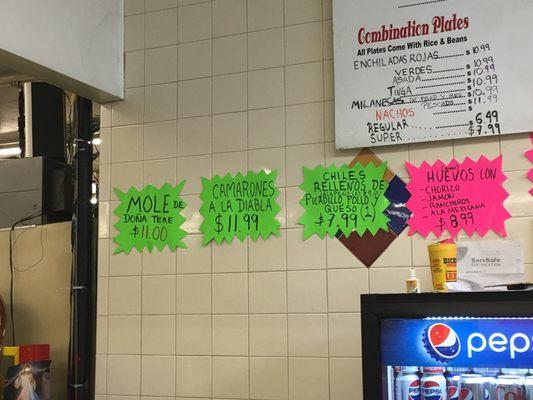 Combination Plates
All Plates Come With Rice & Beans
ENCHILADAS ROJAS $10.99
VERDES $10.99
ASADA $10.99
TINGA $10.99
MILANESAS DE POLLO Y RES $10.99
PESCADO $11.99
NACHOS
REGULAR $6.49
SUPER $7.99
MOLE DE
DOÑA TERE
$11.00
CAMARONES
A LA DIABLA
$11.99
CHILES
RELLENOS DE
PICADILLO, POLLO Y
QUESO
$7.99 (1)
HUEVOS CON
- CHORIZO
- JAMON
- RANCHEROS
- ALA MEXICANA
$8.99
ServSafe
CERTIFICATION
pepsi
PEPSI